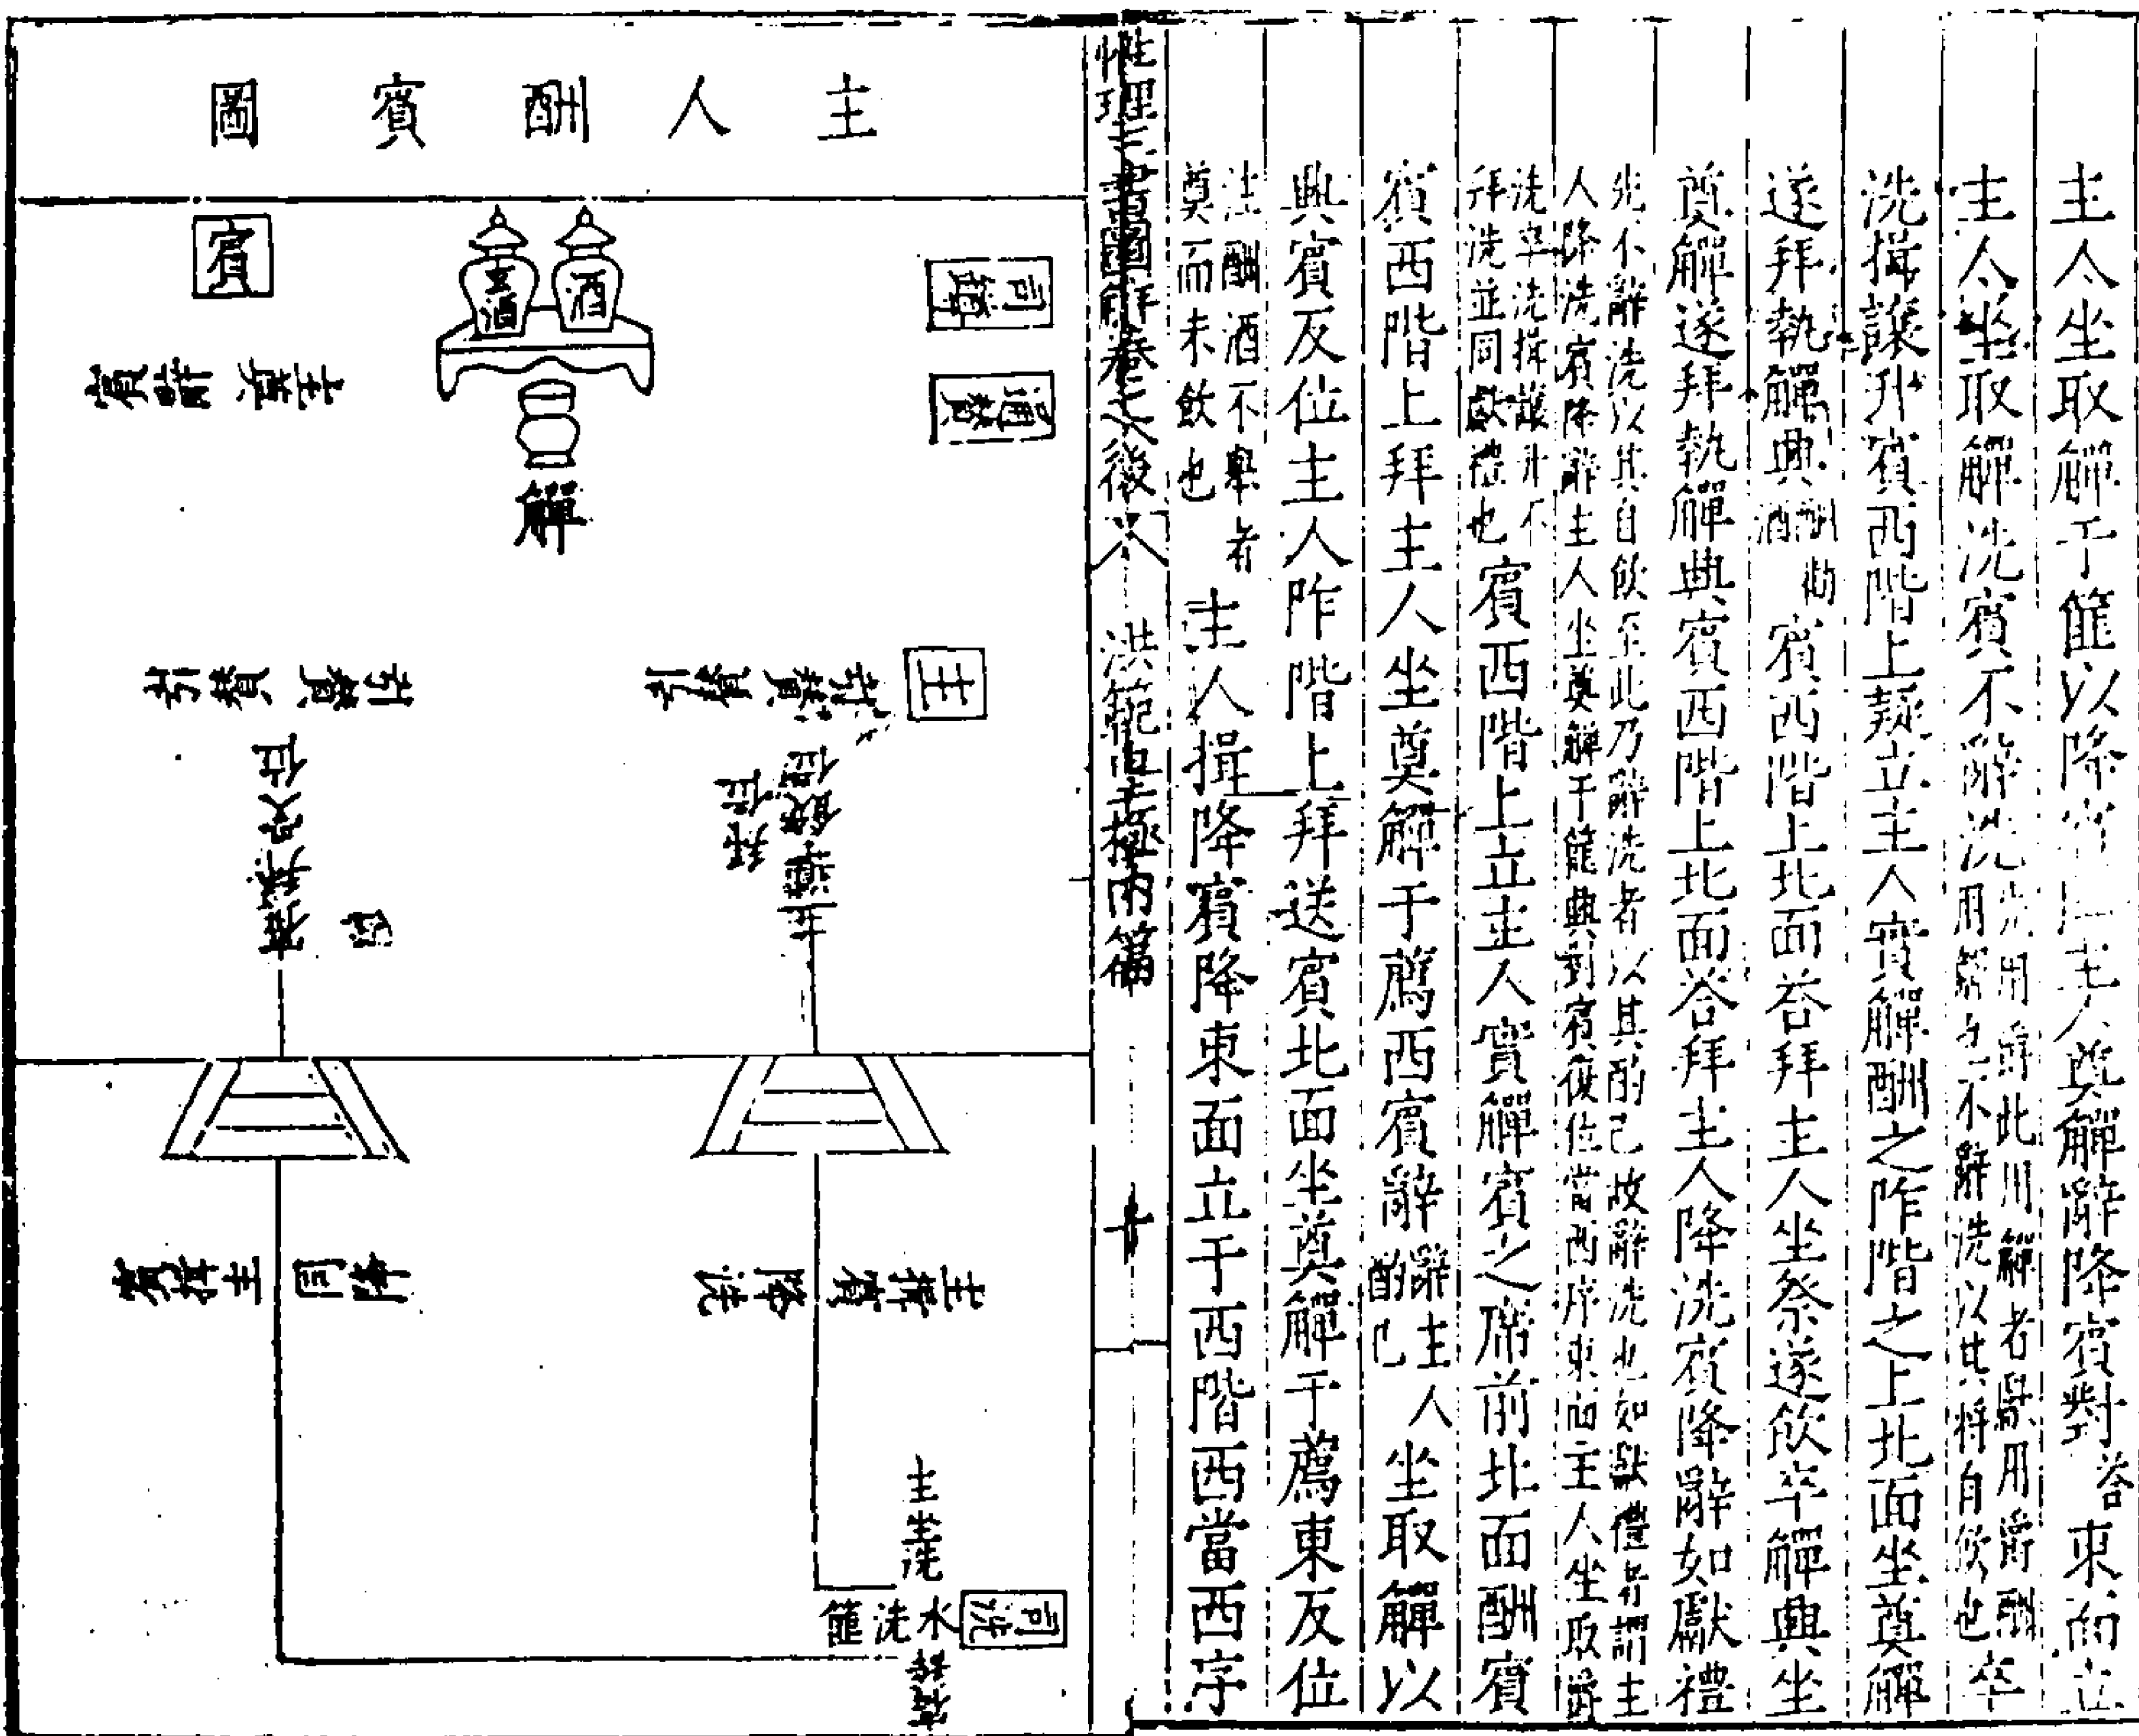 主人坐取觶于篚以降主人奠觶辭降賓對答東面立
主人坐取觶洗賓不辭洗
用爵此用觶者獻用爵酬
用觶也不辭洗以其將自飲也卒
洗揖讓升賓西階上疑立主人實觶酬之阼階之上北面坐奠觶
遂拜執觶興
酬酒
賓西階上北面荅拜主人坐祭遂飲卒觶興坐
奠觶遂拜執觶興賓西階上北面荅拜主人降洗賓降辭如獻禮
先不辭洗以其自飲至此乃辭洗者以其酌己故辭洗也如獻禮者謂主
人降洗賓降辭主人坐奠觶于篚興對賓復位當西序東面主人坐取爵
洗卒洗揖讓升不
拜洗並同獻禮也
賓西階上立主人實觶賓之席前北面酬賓
賓西階上拜主人坐奠觶于薦西賓辭
辭主人
酌己
坐取觶以
興賓反位主人阼階上拜送賓北面坐奠觶于薦東反位
注酬酒不舉者
奠而未飲也
主人揖降賓降東面立于西階西當西字
性理三書圖解卷之後八
洪範皇極內篇
十
主人酬賓圖
司罇
通贊
酒
玄酒
觶
賓
主奠觶賓
主
引贊
引贊
位
主
飲
拜位
主揖賓降洗
主
賓
主坐洗
水
洗
篚
司洗